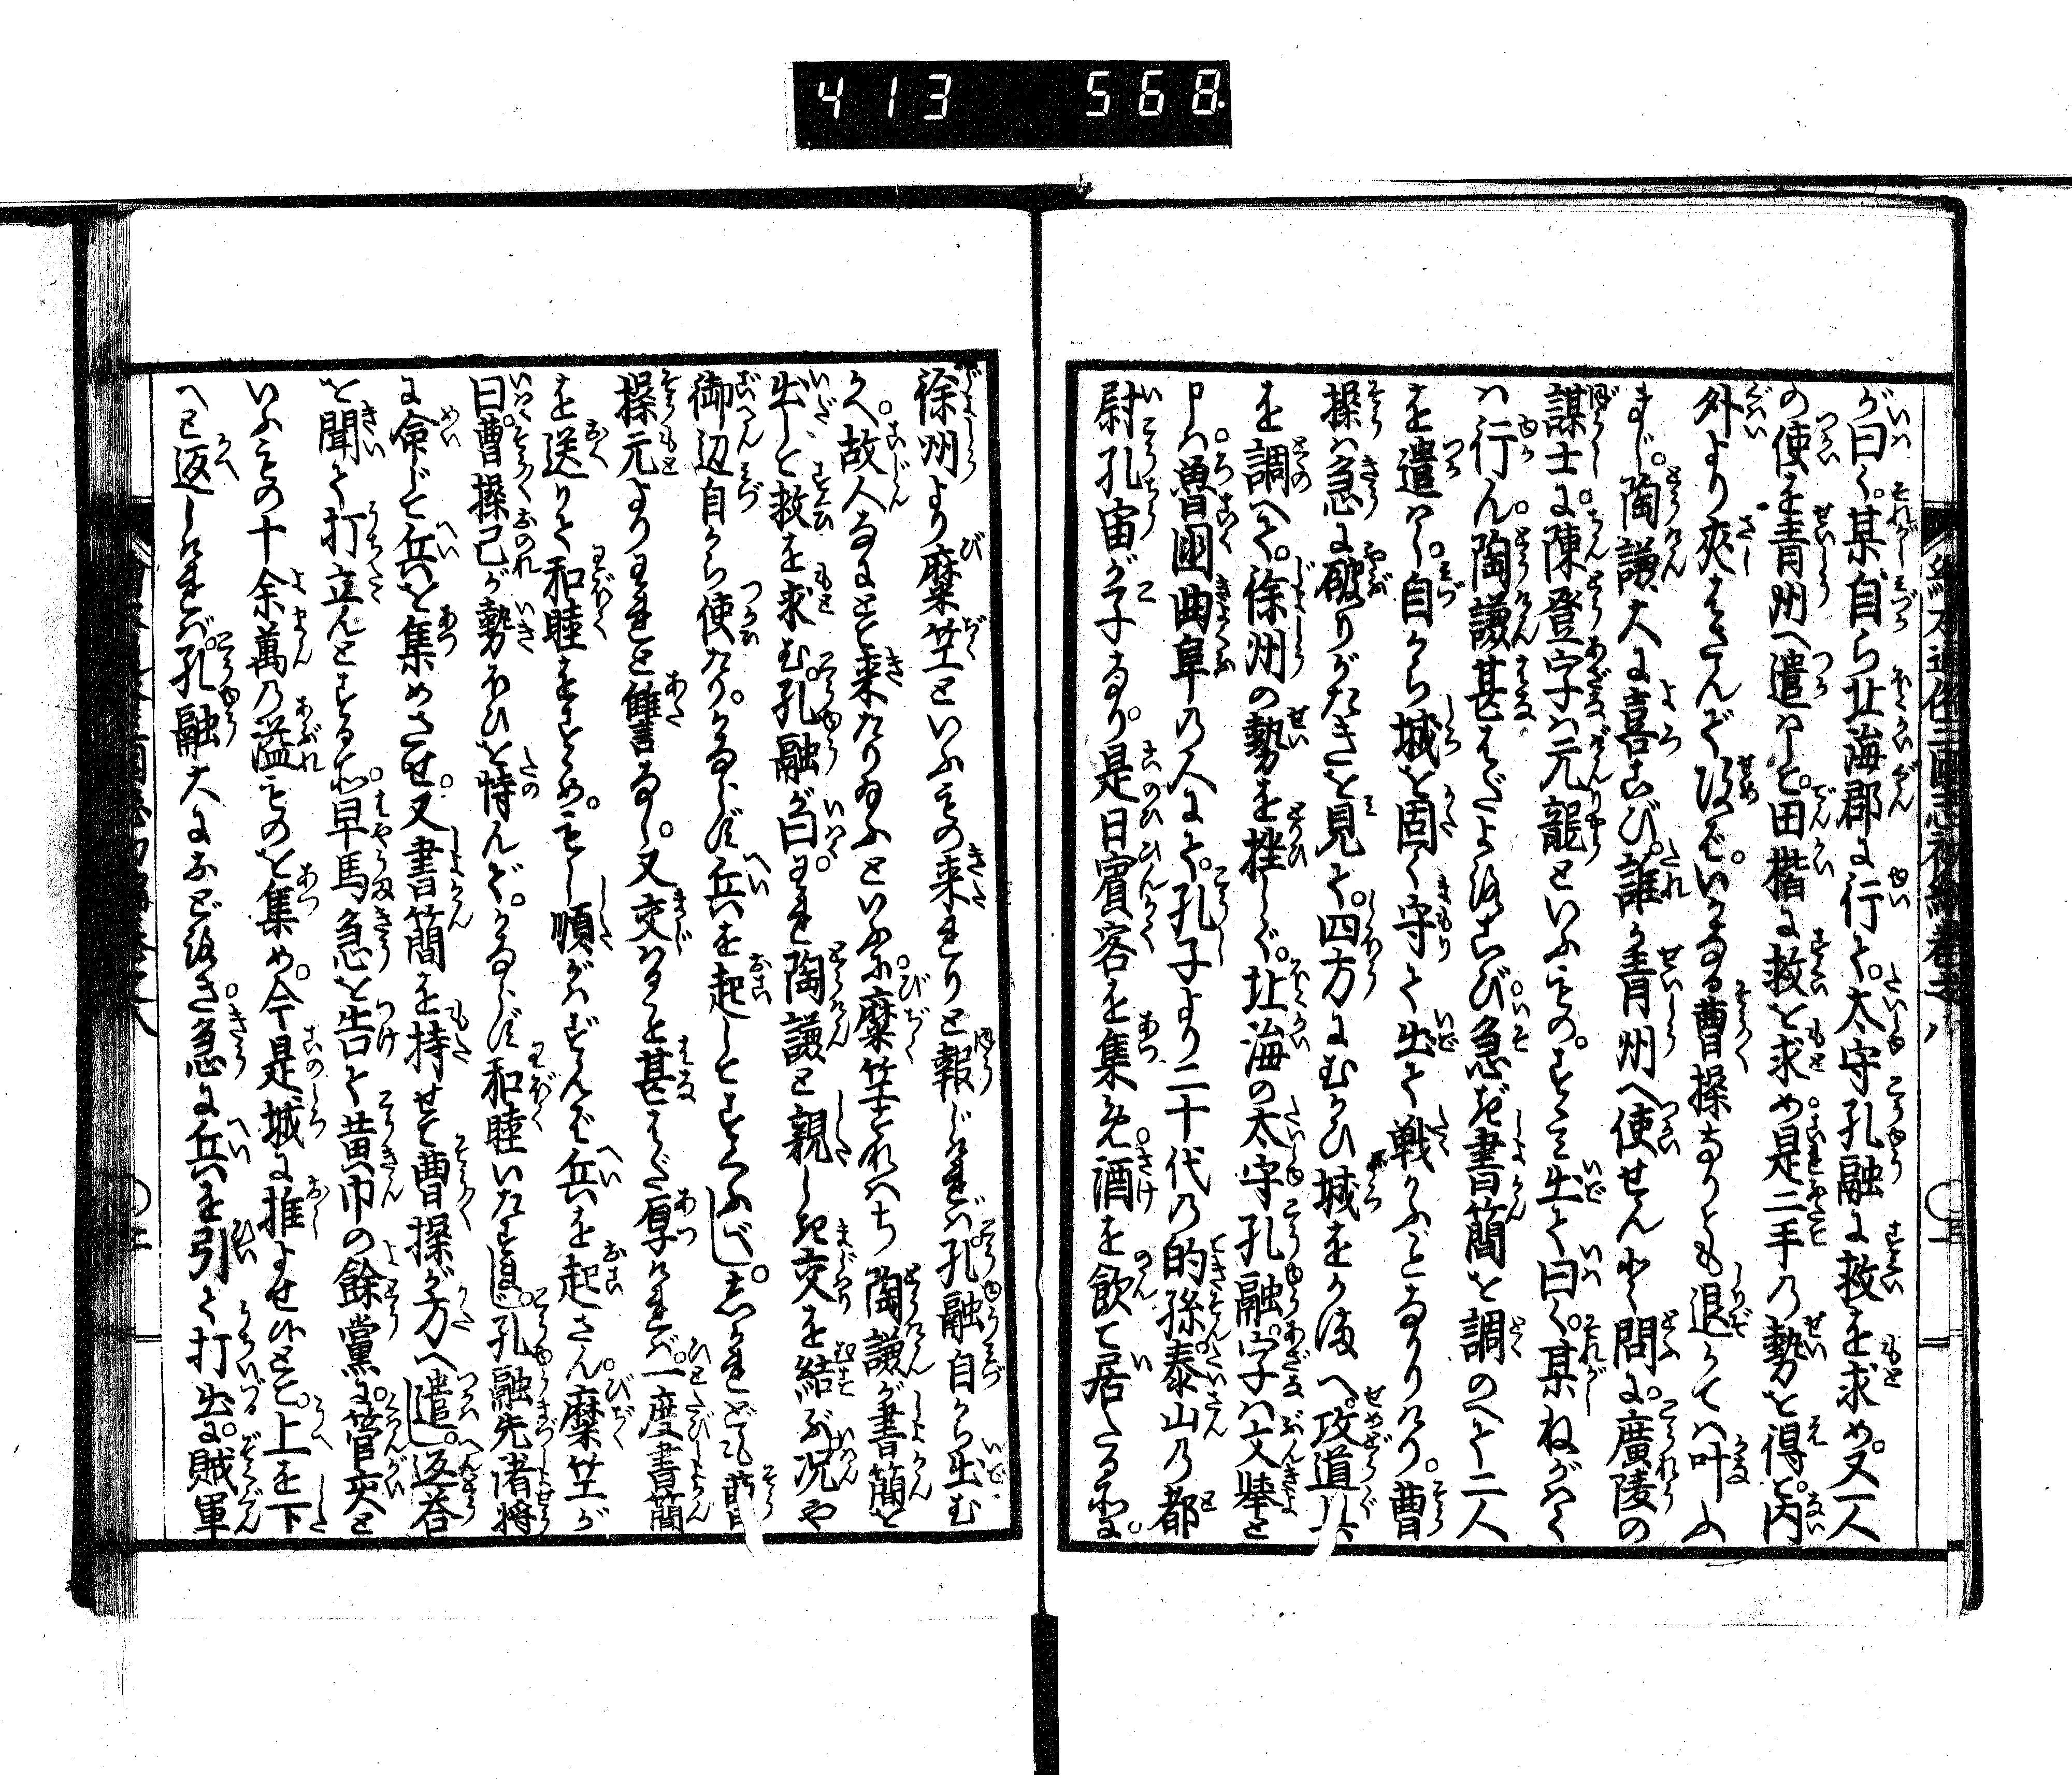 413 568
が曰く。某自ら北海郡に行て。太守孔融に救を求め。又一人
の使を青州へ遣はして。田楷に救を求め。是二手の勢を得て。内
外より夾はさんで攻ば。いかなる曹操なりとも退かでは叶ふ
まじ。陶謙大に喜こび。誰か青州へ使せんやと問に。廣陵の
謀士に。陳登字は元龍といふもの。すゝみ出て曰く。某ねがはく
は行ん。陶謙甚はだよろこび。急ぎ書簡を調のへて二人
を遣はし。自から城を固く守て出て戦かふことなかりけり。曹
操は急に破りがたきを見て。四方にむかひ城をかまへ。攻道具
を調へて。徐州の勢を挫しぐ。北海の太守孔融。字は文舉と
申は。魯国曲阜の人にて。孔子より二十代の的孫。泰山の都
尉孔宙が子なり。是日賓客を集め。酒を飲て居たる所に。
徐州より糜竺といふもの来れりと報じければ。孔融自から出む
かへ。故人なにとて来たり給ふといふに。糜竺すなはち陶謙が書簡を
出して救を求む。孔融が曰。われ陶謙と親しき交を結ぶ。况や
御辺自から使たり。かならず兵を起してすくふべし。しかれども曹
操元よりわれと讐なし。又交はること甚はだ厚ければ。一度書簡
を送りて和睦をすゝめ。もし順がはずんば兵を起さん。糜竺が
曰。曹操己が勢ひを恃んで。かならず和睦いたすまじ。孔融先諸将
に命じて兵を集めさせ。又書簡を持せて曹操が方へ遣し。返答
を聞て打立んとする所。早馬急を告て黄巾の餘黨に。管亥と
いふもの十余萬の溢ものを集め。今是城に推よせ候とて。上を下
へと返しければ。孔融大におどろき急に兵を引て打出に。賊軍